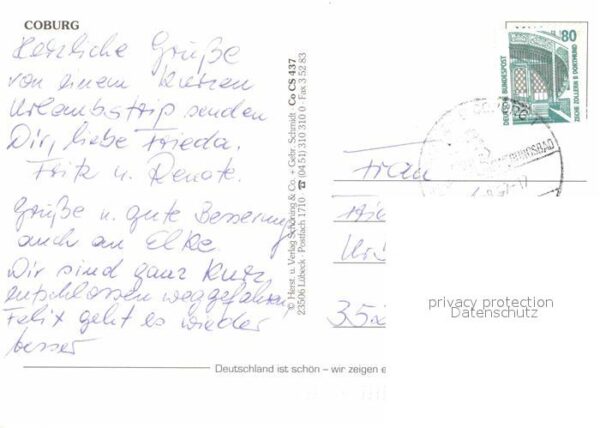 COBURG
Herzliche Grüße
von einem kurzen
Urlaubstrip senden
Dir, liebe Frieda,
Fritz u. Renate.
Grüße u. gute Besserung
auch an Elke.
Wir sind ganz kurz
entschlossen weggefahren,
Felix geht es wieder
besser
© Herst. u. Verlag Schöning & Co. + Gebr. Schmidt Co CS 437
23506 Lübeck · Postfach 1710 ☎ (04 51) 310 310 0 · Fax 3 52 83
80
DEUTSCHE BUNDESPOST
ZECHE ZOLLERN II DORTMUND
Frau
35
privacy protection
Datenschutz
Deutschland ist schön – wir zeigen e